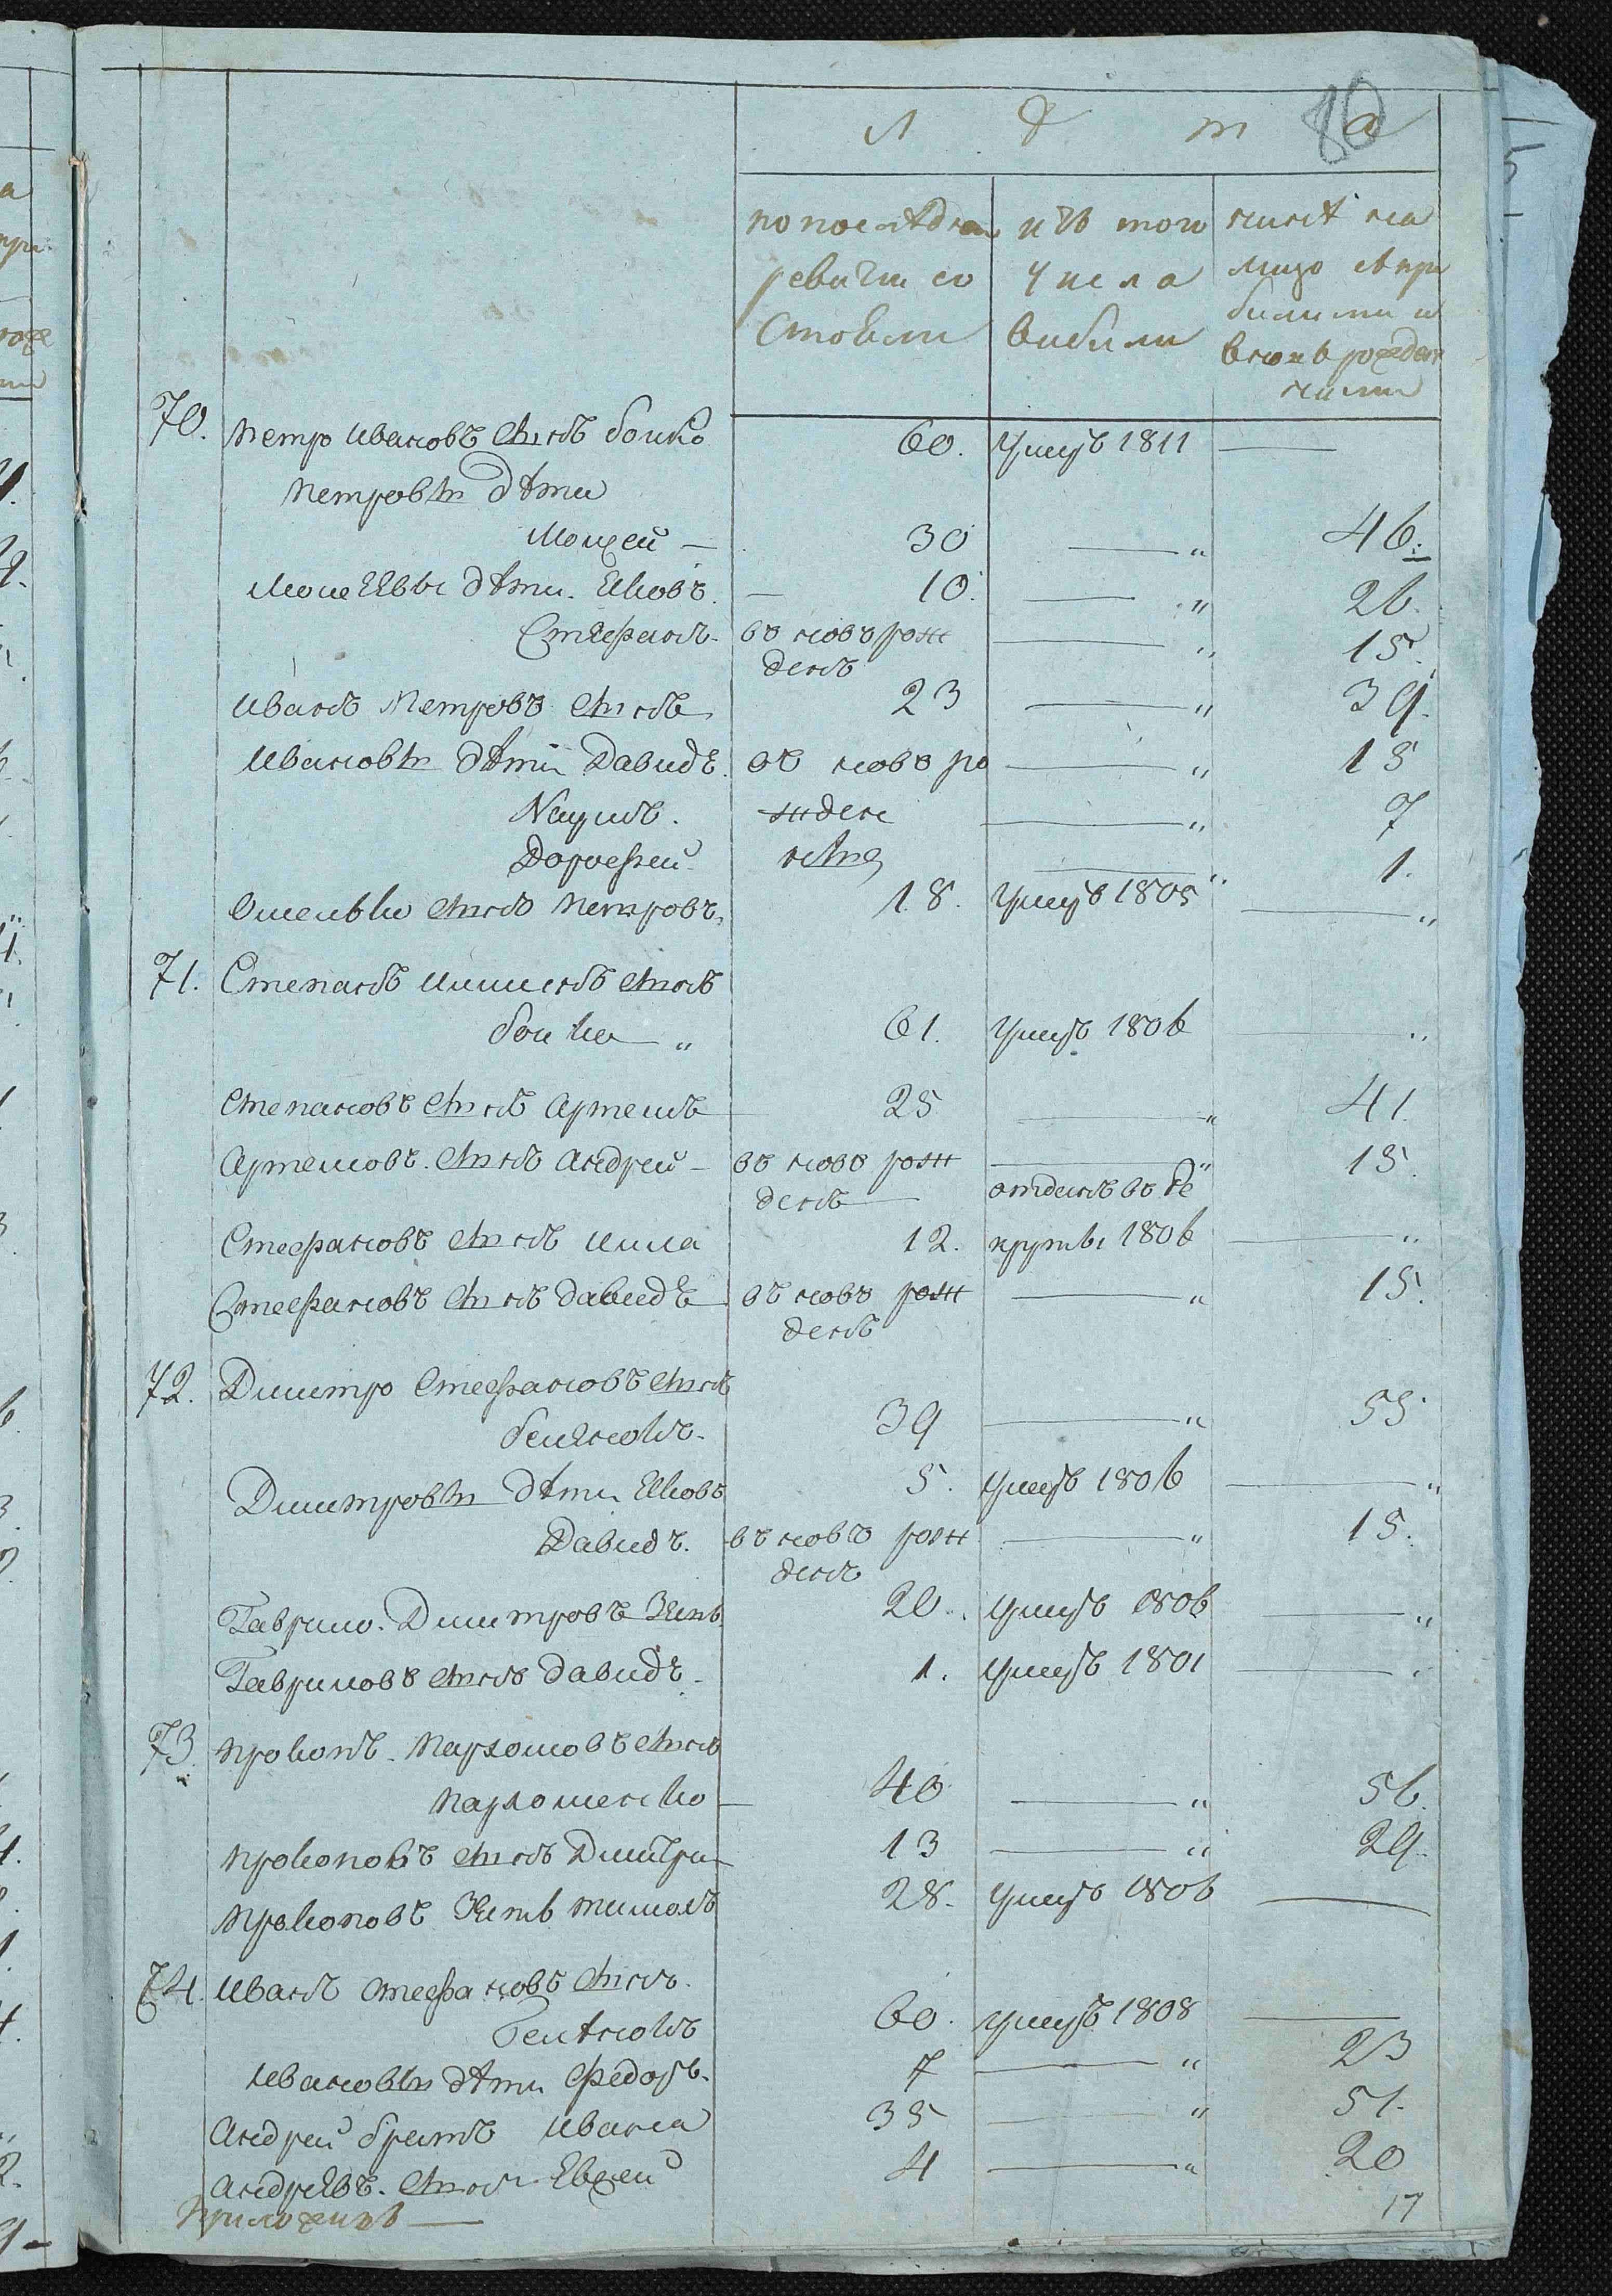 80
Л ѣ т а
по последней из того ныне на
ревизии со числа лицо с при
стояли выбили былыми и
вновь рожден
ными
70. Петро Ивановъ сынъ Бойко 60. умеръ 1811
Петровы дѣти
Мойсей 30 " 46.
Мойсеевы дѣти. Яковъ 10. " 26.
Стефанъ въ новъ рож " 15.
денъ
Иванъ Петровъ сынъ 23 " 39.
Ивановы дѣти Давидъ въ новъ ро " 15
Наумъ. жден " 7
Дорофей ные " 1.
Омелько сынъ Петровъ 18. умеръ 1805 "
71. Степанъ Мининъ сынъ
Бойко " 61. умеръ 1806 "
Степановъ сынъ Артемъ 25 " 41.
Артемовъ. сынъ Андрей въ новъ рож " 15.
денъ отданъ въ ре
Стефановъ сынъ Мина 12. круты 1806 "
Стефановъ сынъ Давидъ въ новъ рож " 15.
денъ
72. Димитро Стефановъ сынъ
39 " 55
Димитровы дѣти Яковъ 5. умеръ 1806 "
Давидъ. въ новъ рож " 15.
денъ
Гаврило. Димитровъ Зять 20. умеръ 1806 "
Гавриловъ сынъ Давидъ 1. умеръ 1801 "
73. Прокопъ. Пархомовъ сынъ
Пархоменко 40 " 56.
Прокоповъ сынъ Димитри 13 " 29.
Прокоповъ Зять 28. умеръ 1806
74. Иванъ Стефановъ сынъ.
60. умеръ 1808
Ивановы дѣти Федоръ. 7 " 23
Андрей братъ Ивана 35 " 51.
Андреевъ. сынъ Евсей 4 " 20
17